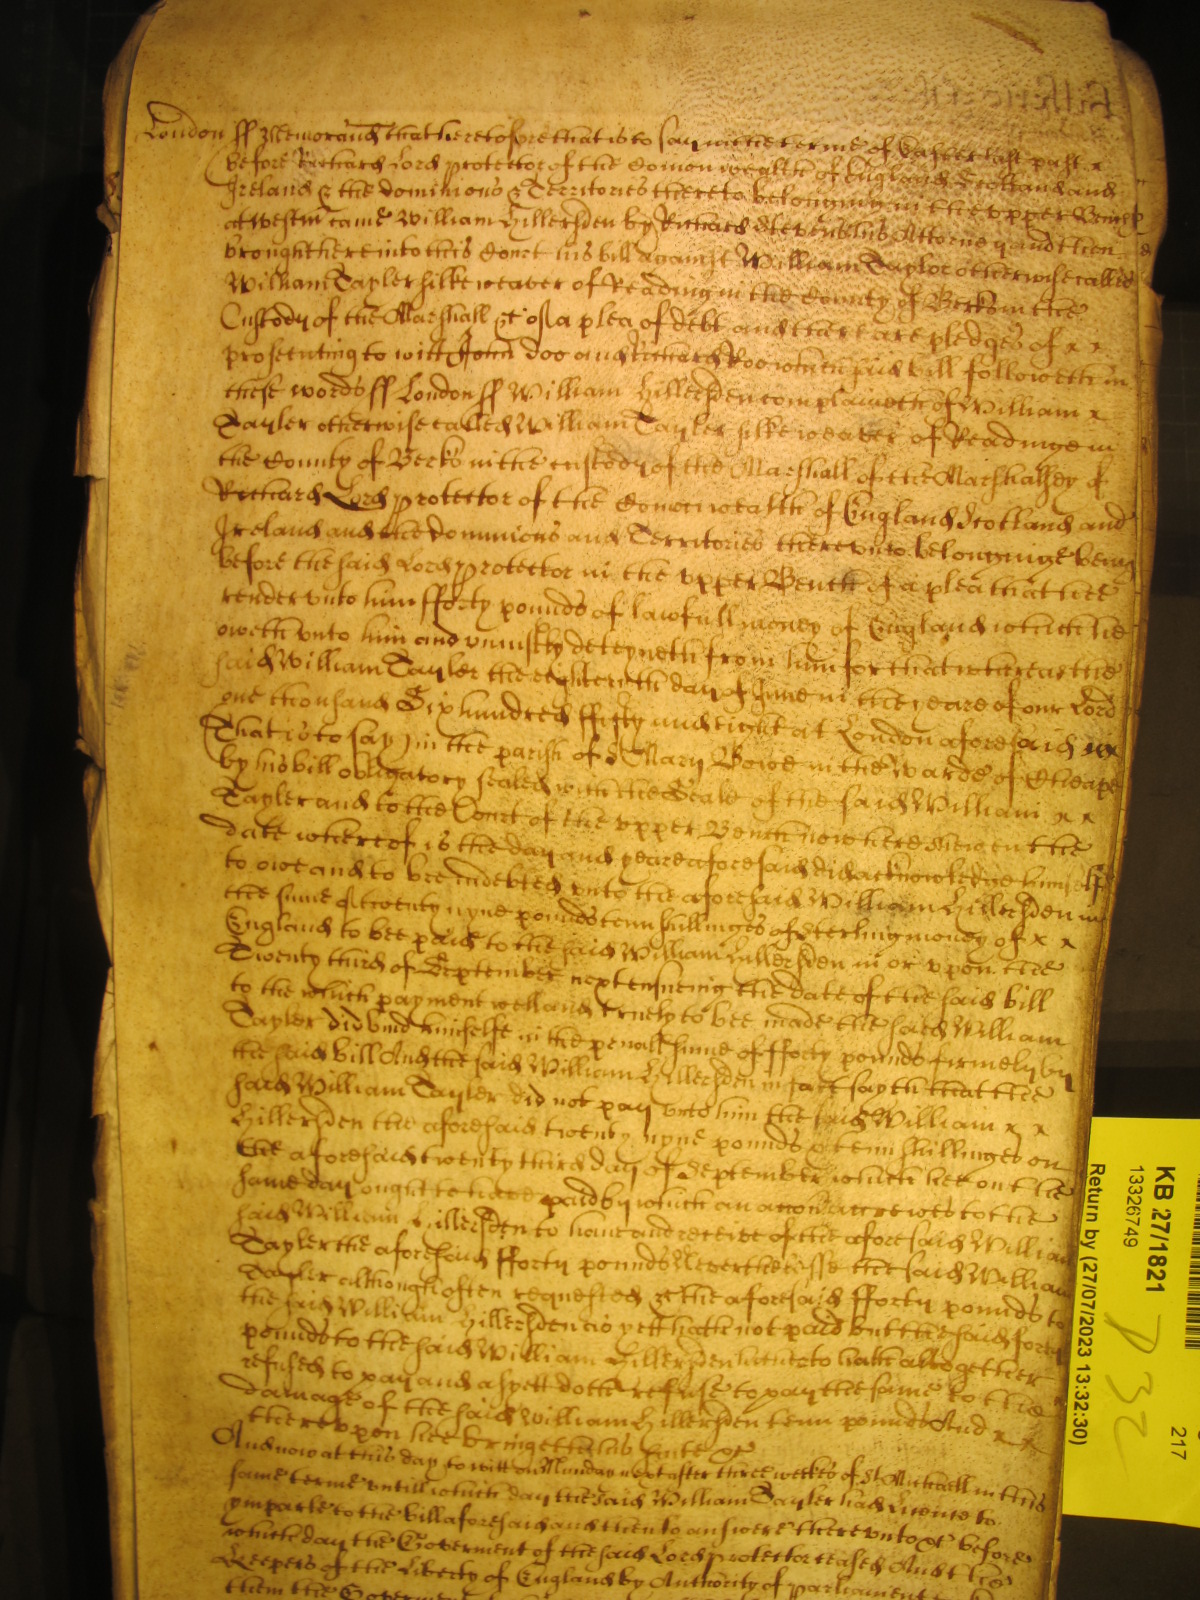 London ss Memorand that heretofore that is to say in the terme of Easter last past x
before Richard Lord Protector of the Comonwealth of England Scotland and
Ireland & the dominions & Territories thereto belonging in the upper Bench
at Westm came William Hillersden by Richard Stevens his Attorney and then
brought here into this Court his bill against William Taylor otherwise called
William Tayler silkeweaver of Reading in the County of Berks in the
Custody of the Marshall &c of a plea of debt and there are pledges of x x
prosecuting to witt John Doo and Richard Roo which said bill followeth in
these words ss London ss William Hillersden complaineth of William x
Tayler otherwise called William Tayler silkeweaver of Readinge in
the County of Berks in the custody of the Marshall of the Marshalsey of
Richard Lord Protector of the Comonwealth of England Scotland and
Ireland and the dominions and Territories thereunto belonginge being
before the said Lord Protector in the upper Bench of a plea that hee
render unto him fforty pounds of lawfull money of England which he
oweth unto him and uniustly deteyneth from him for that whereas the
said William Tayler the eighteenth day of June in the yeare of our Lord
one thousand Six hundred ffifty and eight at London aforesaid
(That is to say) in the parish of S Mary Bowe in the warde of Cheape
by his bill obligatory sealed with the Seale of the said William x x
Tayler and to the Court of the upper Bench now here shewen the
date whereof is the day and yeare aforesaid did acknowledge himself
to owe and to bee indebted unto the aforesaid William Hillersden in
the sume of twenty nyne pounds tenn shillinges of sterling money of x x
England to bee paid to the said William Hillersden in or upon the
Twenty third of September next ensueing the date of the said bill
to the which payment well and truely to bee made the said William
Tayler did bind himselfe in the penall sume of fforty pounds firmely by
the said bill And the said William Hillersden in fact sayth that the
said William Tayler did not pay unto him the said William x x
Hillersden the aforesaid twenty nyne pounds & tenn shillinges on
the aforesaid twenty third day of September which hee on the
same day ought to have paid by which an accon accrewes to the
said William Hillersden to have and receive of the aforesaid William
Tayler the aforesaid fforty pounds Neverthelesse the said William
Tayler although often requested &c the aforesaid fforty pounds to
the said William Hillersden as yett hath not paid but the said forty
pounds to the said William Hillersden hitherto hath altogether
refused to pay and as yett doth refuse to pay the same to the
damage of the said William Hillersden tenn pounds And x x
thereupon hee bringeth his sute &c
And now at this day to witt on Munday next after three weekes of St Michaell in this
same terme untill which day the said William Tayler had licence to
imparle to the bill aforesaid and then to answere thereunto &c before
which day the Goverment of the said Lord Protector ceased And the
Keepers of the Liberty of England by Authority of parliament
them the Goverment
KB 27/1821
13326749
217
Return by (27/07/2023 13:32:30)